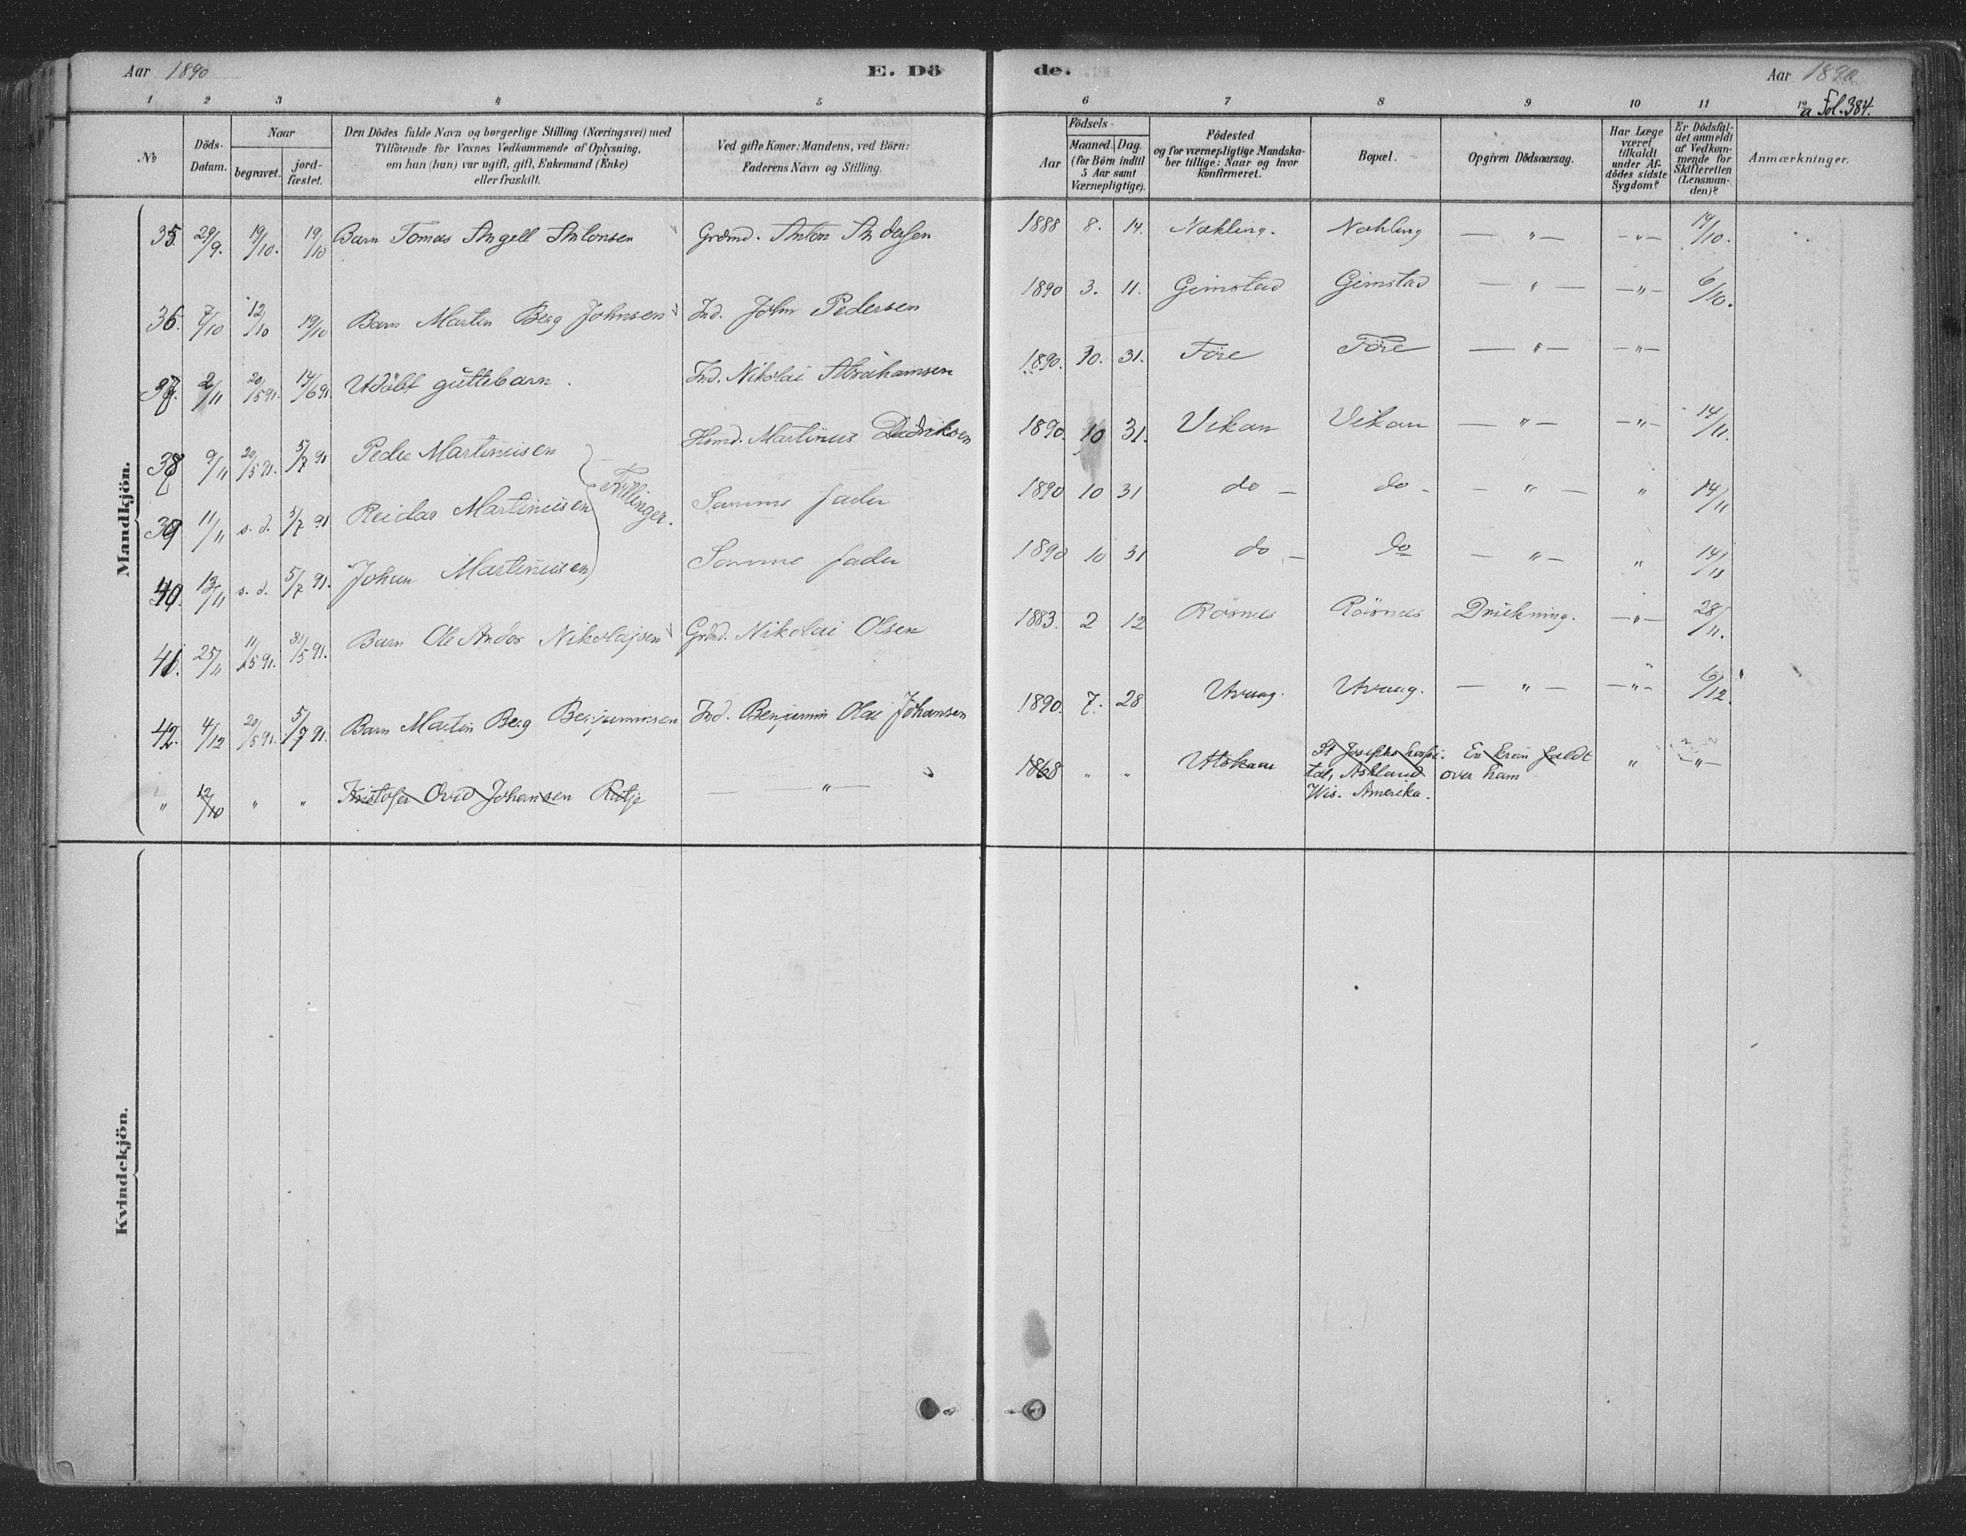 Aar 1890 E. Dö de. Aar 1890
1 2 3 4 5 6 7 8 9 10 11 12
a Fol. 384.
No
Döds-Datum.
Naar
begravet.
jord-fæstet.
Den Dödes fulde Navn og borgerlige Stilling (Næringsvei) med
Tilföiende for Voxnes Vedkommende af Oplysning,
om han (hun) var ugift, gift, Enkemand (Enke)
eller fraskilt.
Ved gifte Koner: Mandens, ved Börn:
Faderens Navn og Stilling.
Födsels-
Aar
Maaned. Dag.
(for Börn indtil
5 Aar samt
Værnepligtige).
Födested
og for værnepligtige Mandska-
ber tillige: Naar og hvor
konfirmeret.
Bopæl.
Opgiven Dödsaarsag.
Har Læge
været
tilkaldt
under Af-
dödes sidste
Sygdom?
Er Dödsfal-
det anmeldt
af Vedkom-
mende for
Skifteretten
(Lensman-
den)?
Anmærkninger.
Mandkjön.
35. 29/9. 19/10. 19/10 Barn Tomas Angell Antonsen Grdmd. Anton Andersen 1888 8. 14. Nøkling. Nøkling — " — — " — 19/10.
36. 7/10 12/10 19/10 Barn Martin Berg Johnsen Ind. John Pedersen 1890 3. 11. Gimstad Gimstad — " — — " — 6/10.
37. 2/11 20/5 91. 14/6 91. Udöbt guttebarn. Ind. Nikolai Abrahamsen 1890. 10. 31. Före Före — " — — " —
38 9/11 20/5 91. 5/7 91 Peder Martinusen Husmd. Martinus Didriksen 1890. 10 31. Vikan Vikan — " — — " — 14/11.
Trillinger.
39 11/11 s. d. 5/7 91 Reidar Martinusen Samme fader 1890 10 31 do — do — — " — " 14/11
40. 13/11 s. d. 5/7 91. Johan Martinusen Samme fader 1890 10 31 do — do — " — " 14/11
41. 25/11 11/5 91. 31/5 91. Barn Ole Andor Nikolajsen Grdmd. Nikolai Olsen 1883. 2 12 Rösnes Rösnes Drukning. — " — 28/11.
42. 4/12 20/5 91. 5/7 91. Barn Martin Berg Benjaminsen Ind. Benjamin Olai Johansen 1890. 7. 28 Utvaag. Utvaag. — " — — " — 6/12.
" 12/10 " " Kristofer Ovid Johansen Rotje — " — 1868 " " Utskaar St Josephs hospi-
tal, Ashland
Wis. Amerika. En kran faldt
over ham " — " —
Kvindekjön.